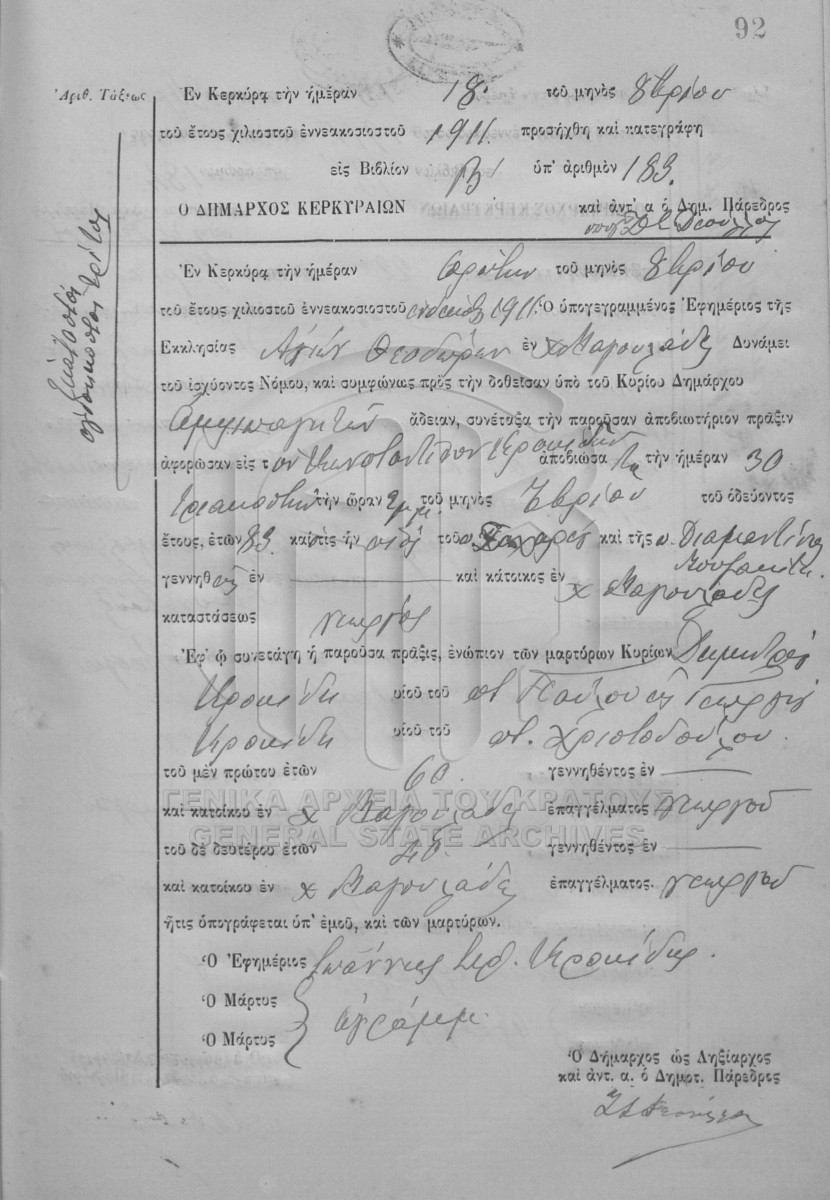 92
Ἀριθ. Τάξεως
Ἐν Κερκύρᾳ τὴν ἡμέραν 18 τοῦ μηνὸς 8βρίου
τοῦ ἔτους χιλιοστοῦ ἐννεακοσιοστοῦ 1911. προσήχθη καὶ κατεγράφη
εἰς Βιβλίον Β΄ ὑπ' ἀριθμὸν 183.
Ο ΔΗΜΑΡΧΟΣ ΚΕΡΚΥΡΑΙΩΝ καὶ ἀντ' α ὁ Δημ. Πάρεδρος
ἑκατοστὸν
ὀγδοηκοστὸν τρίτον
Ἐν Κερκύρᾳ τὴν ἡμέραν πρώτην τοῦ μηνὸς 8βρίου
τοῦ ἔτους χιλιοστοῦ ἐννεακοσιοστοῦ ἑνδεκάτου 1911. Ὁ ὑπογεγραμμένος Ἐφημέριος τῆς
Ἐκκλησίας Ἁγίων Θεοδώρων ἐν χ Μαγουλάδες Δυνάμει
τοῦ ἰσχύοντος Νόμου, καὶ συμφώνως πρὸς τὴν δοθεῖσαν ὑπὸ τοῦ Κυρίου Δημάρχου
Ἀμφιπαγητῶν ἄδειαν, συνέταξα τὴν παροῦσαν ἀποβιωτήριον πρᾶξιν
ἀφορῶσαν εἰς τὸν Κωνσταντῖνον Κροκίδην ἀποβιώσαντα τὴν ἡμέραν 30
τριακοστὴν τὴν ὥραν μμ. τοῦ μηνὸς 7βρίου τοῦ ὁδεύοντος
ἔτους, ἐτῶν 83. καὶ τις ἦν υἱὸς τοῦ καὶ τῆς π. Διαμαντίνας
Μουζακίτη.
γεννηθεὶς ἐν — καὶ κάτοικος ἐν χ Μαγουλάδες
καταστάσεως γεωργὸς
Ἐφ' ᾧ συνετάγη ἡ παροῦσα πρᾶξις, ἐνώπιον τῶν μαρτύρων Κυρίων Δημητρίου
Κροκίδη υἱοῦ τοῦ π. Παύλου & Γεωργίου
Κροκίδη υἱοῦ τοῦ π. Χριστοδούλου.
τοῦ μὲν πρώτου ἐτῶν 60. γεννηθέντος ἐν —
καὶ κατοίκου ἐν χ Μαγουλάδες ἐπαγγέλματος γεωργοῦ
τοῦ δὲ δευτέρου ἐτῶν 40. γεννηθέντος ἐν —
καὶ κατοίκου ἐν χ Μαγουλάδες ἐπαγγέλματος. γεωργοῦ
ἥτις ὑπογράφεται ὑπ' ἐμοῦ, καὶ τῶν μαρτύρων.
Ὁ Ἐφημέριος Ἰωάννης Κροκίδης.
Ὁ Μάρτυς
ἀγράμμ.
Ὁ Μάρτυς
Ὁ Δήμαρχος ὡς Ληξίαρχος
καὶ ἀντ. α. ὁ Δημοτ. Πάρεδρος
ΓΕΝΙΚΑ ΑΡΧΕΙΑ ΤΟΥ ΚΡΑΤΟΥΣ
GENERAL STATE ARCHIVES